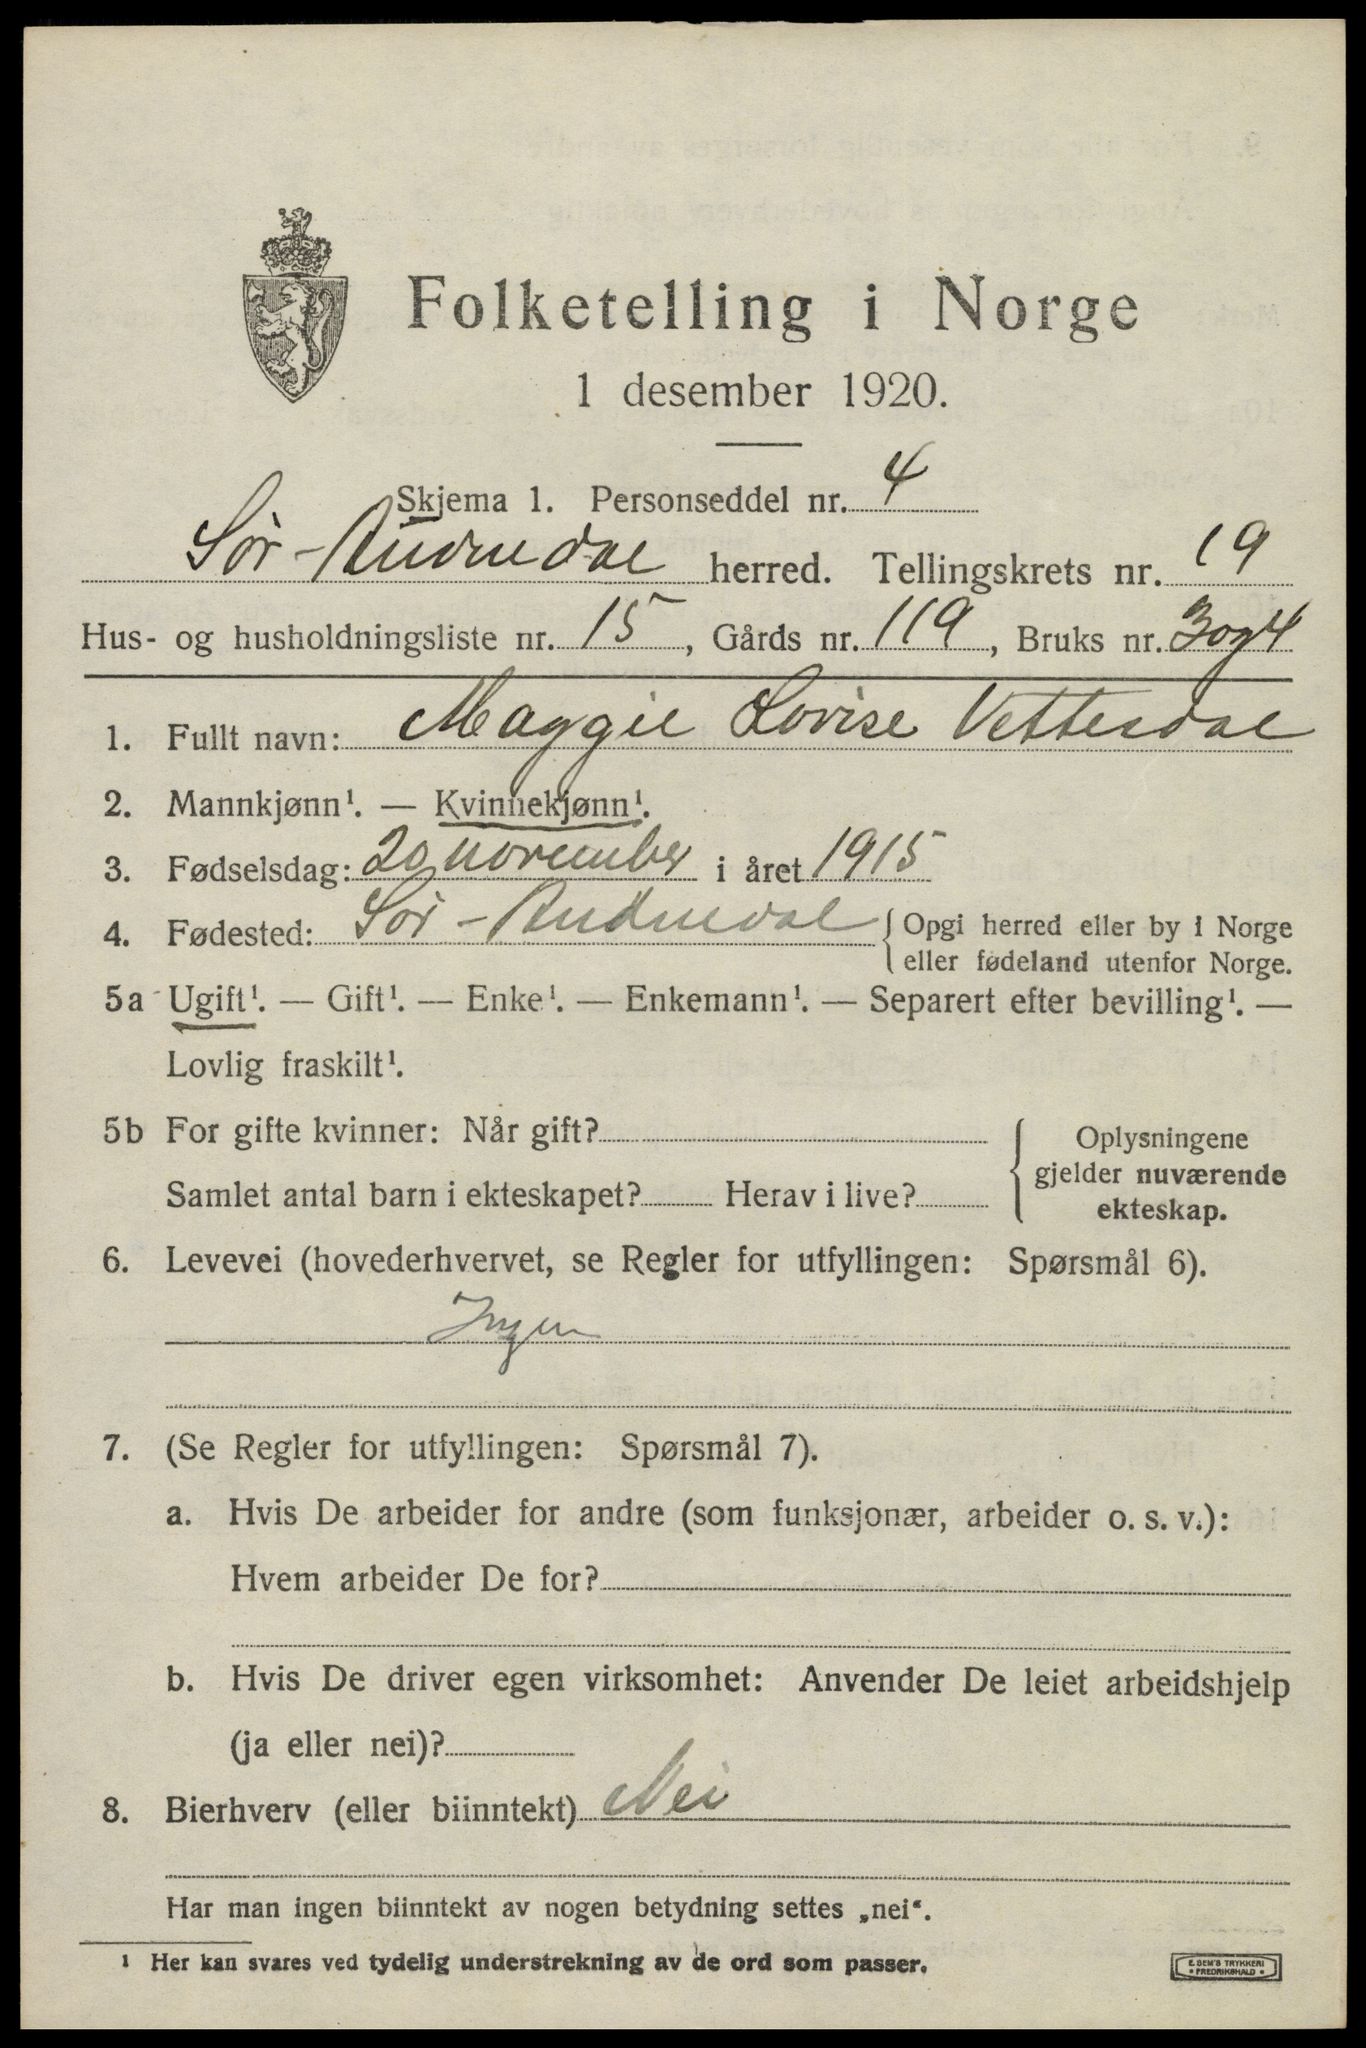 Folketelling i Norge
1 desember 1920.
Skjema 1. Personseddel nr. 4
Sör-Audnedal herred. Tellingskrets nr. 19
Hus- og husholdningsliste nr. 15, Gårds nr. 119, Bruks nr. 3 og 4
1. Fullt navn: Maggie Lovise Vettesdal
2. Mannkjønn¹. — Kvinnekjønn¹.
3. Fødselsdag: 20 november i året 1915
4. Fødested: Sör-Audnedal { Opgi herred eller by i Norge
eller fødeland utenfor Norge.
5a Ugift¹. — Gift¹. — Enke¹. — Enkemann¹. — Separert efter bevilling¹. —
Lovlig fraskilt¹.
5b For gifte kvinner: Når gift?
Samlet antal barn i ekteskapet? Herav i live?
Oplysningene
gjelder nuværende
ekteskap.
6. Levevei (hovederhvervet, se Regler for utfyllingen: Spørsmål 6).
Ingen
7. (Se Regler for utfyllingen: Spørsmål 7).
a. Hvis De arbeider for andre (som funksjonær, arbeider o. s. v.):
Hvem arbeider De for?
b. Hvis De driver egen virksomhet: Anvender De leiet arbeidshjelp
(ja eller nei)?
8. Bierhverv (eller biinntekt) Nei
Har man ingen biinntekt av nogen betydning settes „nei“.
¹ Her kan svares ved tydelig understrekning av de ord som passer.
E. SEM'S TRYKKERI
• FREDRIKSHALD •